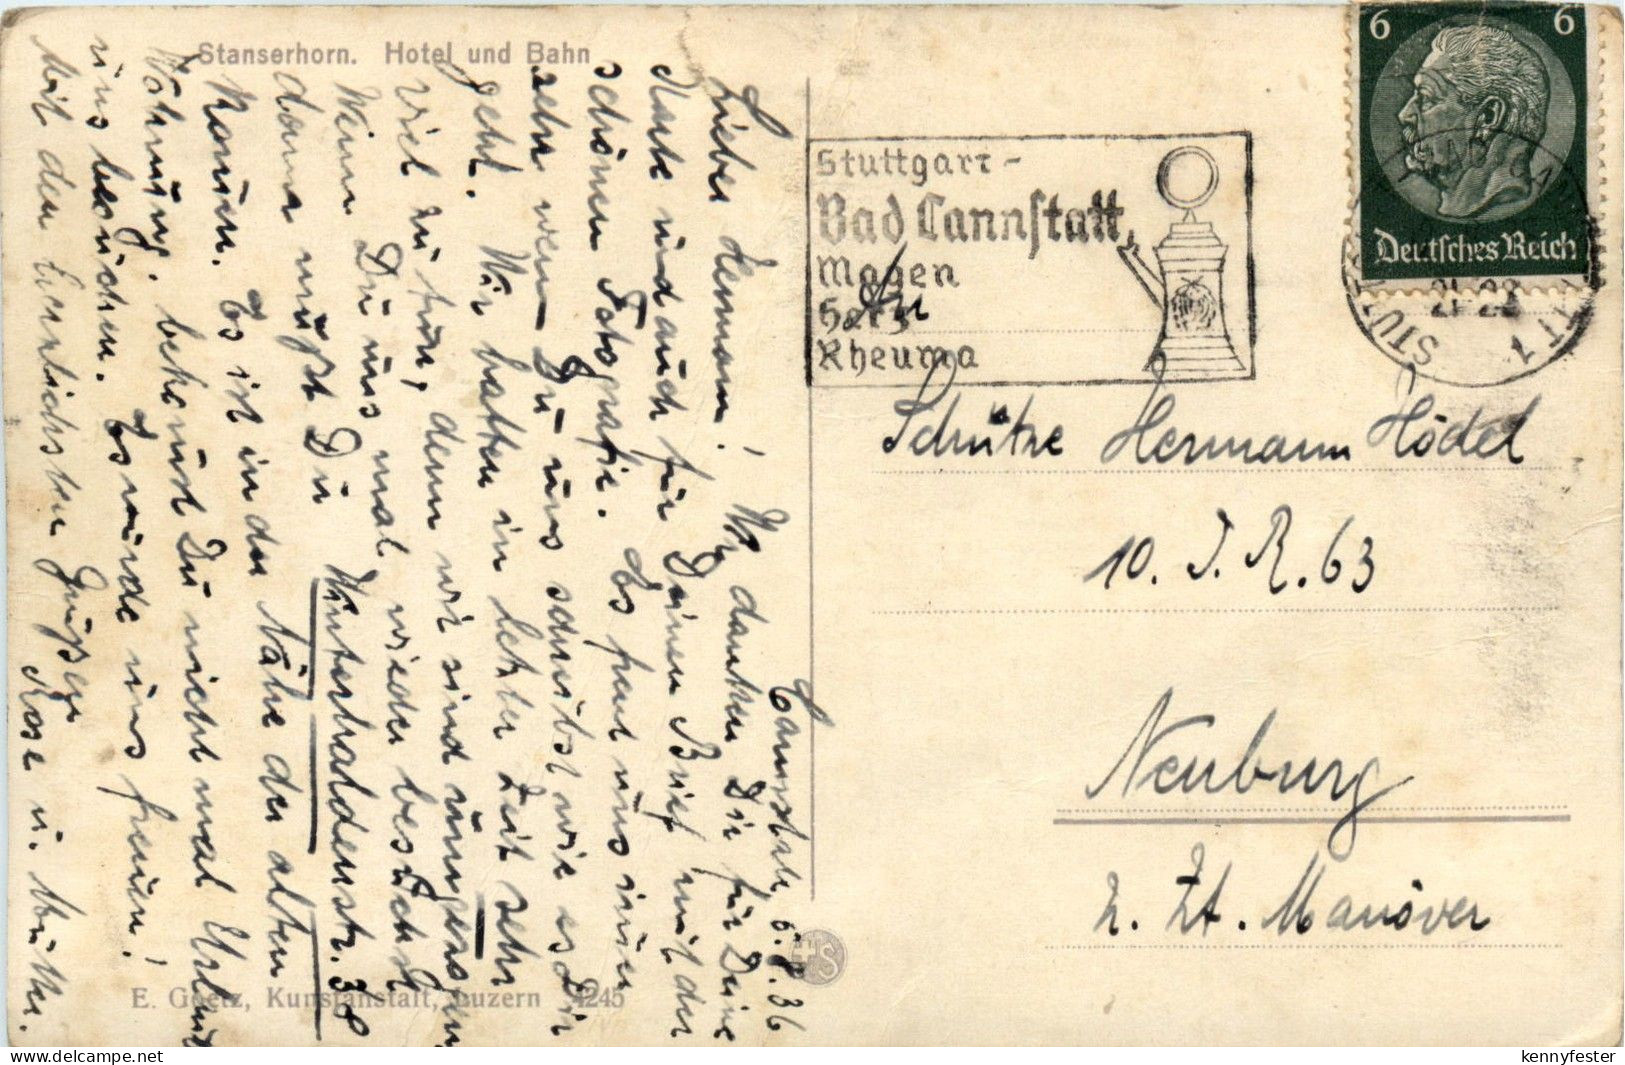 Stanserhorn. Hotel und Bahn
Cannstatt, 6.8.36
Lieber Hermann! Wir danken Dir für Deine
Karte und auch für Deinen Brief mit der
schönen Fotografie. Es freut uns immer
sehr wenn Du uns schreibst wie es Dir
geht. Wir hatten in letzter Zeit sehr
viel zu tun, denn wir sind umgezogen
Wenn Du uns mal wieder besuchst
dann mußt Du Winterhaldenstr. 38
kommen. Es ist in der Nähe der alten
Wohnung. bekommst Du nicht mal Urlaub
uns besuchen. Es würde uns freuen!
Mit den herzlichsten Grüßen
Rose u. Mutter.
E. Goetz, Kunstanstalt, Luzern 4245
Stuttgart-
Bad Cannstatt
Magen
Herz
Rheuma
6 6
Deutsches Reich
An
Schütze Hermann Hödel
10. I. R. 63
Neuburg
z. Zt. Manöver
kennyfester